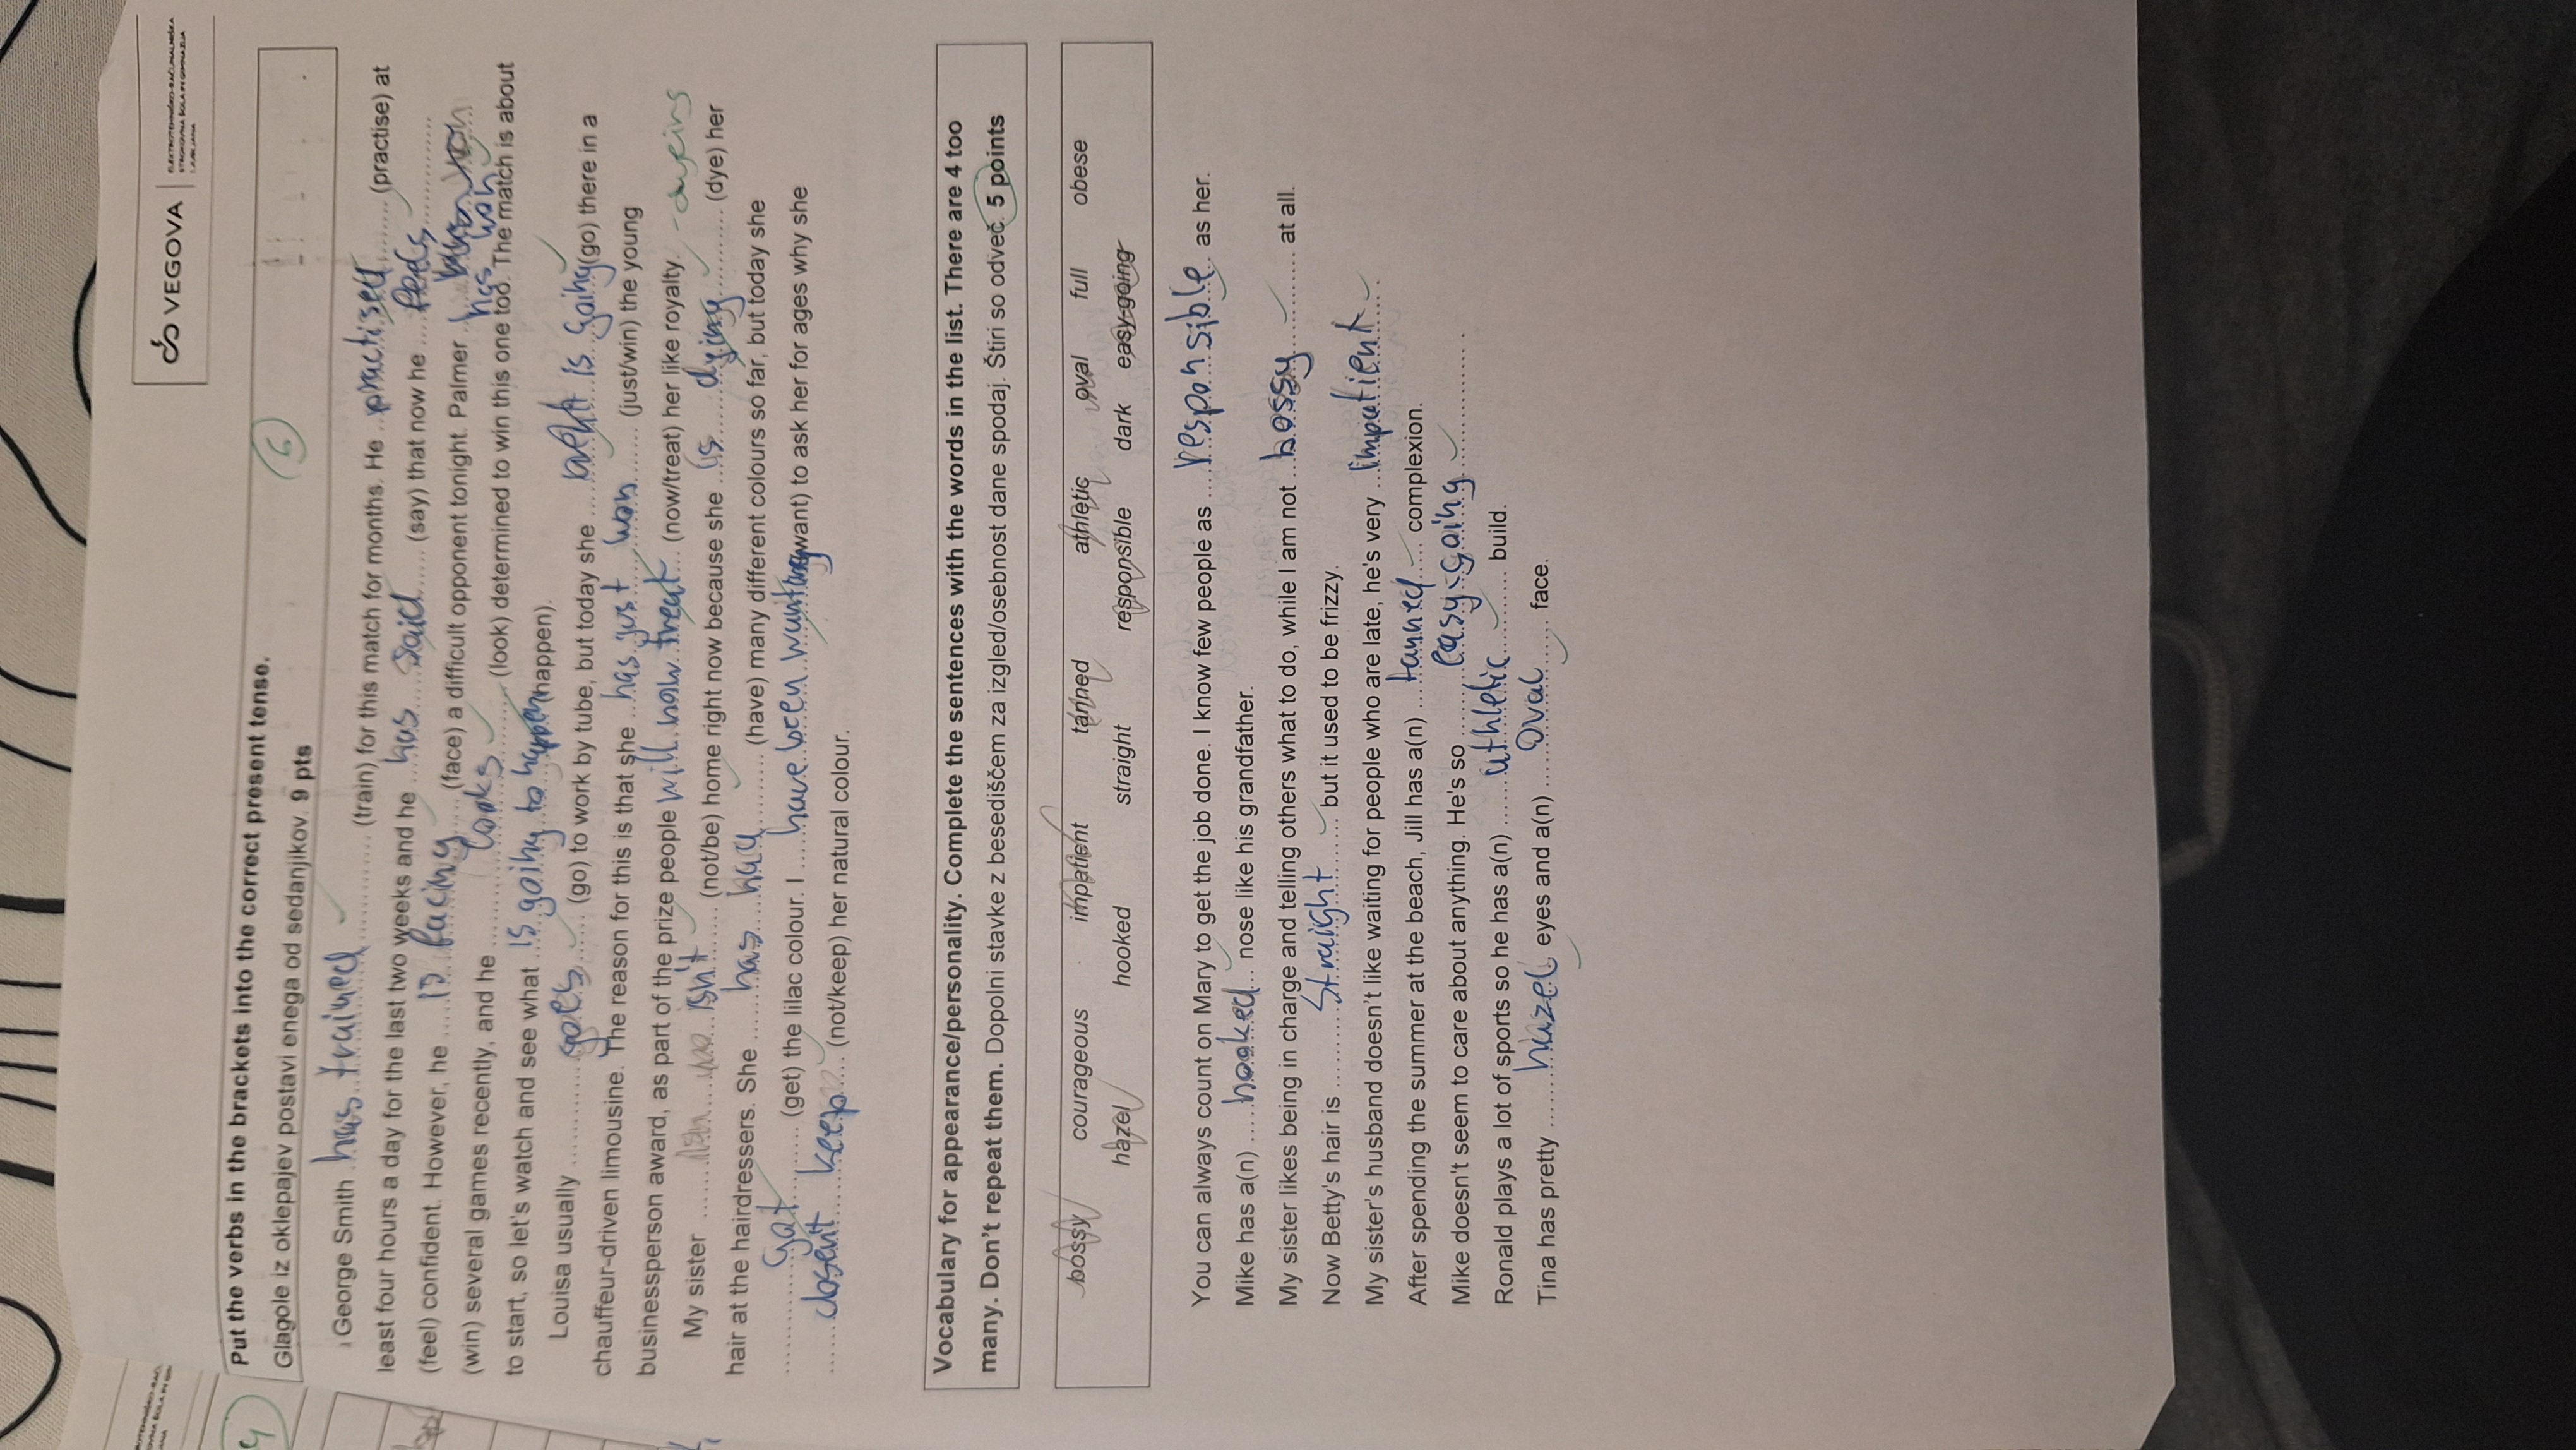 VEGOVA
ELEKTROTEHNIŠKO-RAČUNALNIŠKA
STROKOVNA ŠOLA IN GIMNAZIJA
LJUBLJANA
Put the verbs in the brackets into the correct present tense.
6
Glagole iz oklepajev postavi enega od sedanjikov. 9 pts
George Smith has trained (train) for this match for months. He practised (practise) at
least four hours a day for the last two weeks and he has said (say) that now he feels
(feel) confident. However, he is facing (face) a difficult opponent tonight. Palmer has won
(win) several games recently, and he looks (look) determined to win this one too. The match is about
to start, so let's watch and see what is going to happen (happen).
Louisa usually goes (go) to work by tube, but today she is going (go) there in a
chauffeur-driven limousine. The reason for this is that she has just won (just/win) the young
businessperson award, as part of the prize people will now treat (now/treat) her like royalty. - dyeing
My sister isn't (not/be) home right now because she is dying (dye) her
hair at the hairdressers. She has had (have) many different colours so far, but today she
got (get) the lilac colour. I have been wanting (want) to ask her for ages why she
dosen't keep (not/keep) her natural colour.
Vocabulary for appearance/personality. Complete the sentences with the words in the list. There are 4 too
many. Don't repeat them. Dopolni stavke z besediščem za izgled/osebnost dane spodaj. Štiri so odveč. 5 points
bossy courageous impatient tanned athletic oval full obese
hazel hooked straight responsible dark easy-going
You can always count on Mary to get the job done. I know few people as responsible as her.
Mike has a(n) hooked nose like his grandfather.
My sister likes being in charge and telling others what to do, while I am not bossy at all.
Now Betty's hair is straight but it used to be frizzy.
My sister's husband doesn't like waiting for people who are late, he's very impatient
After spending the summer at the beach, Jill has a(n) tanned complexion.
Mike doesn't seem to care about anything. He's so easy-going .
Ronald plays a lot of sports so he has a(n) athletic build.
Tina has pretty hazel eyes and a(n) oval face.